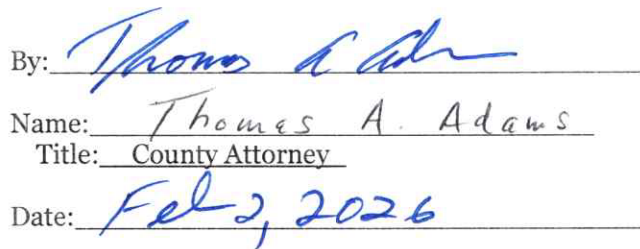 By: Thomas A Adams
Name: Thomas A. Adams
Title: County Attorney
Date: Feb 2, 2026